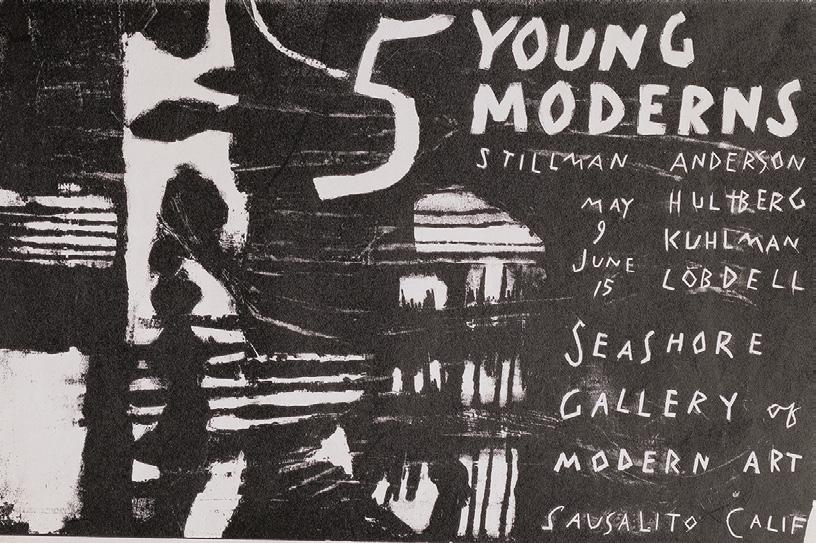 5 YOUNG
MODERNS
STILLMAN ANDERSON
MAY HULTBERG
9 KUHLMAN
JUNE LOBDELL
15
SEASHORE
GALLERY of
MODERN ART
SAUSALITO CALIF